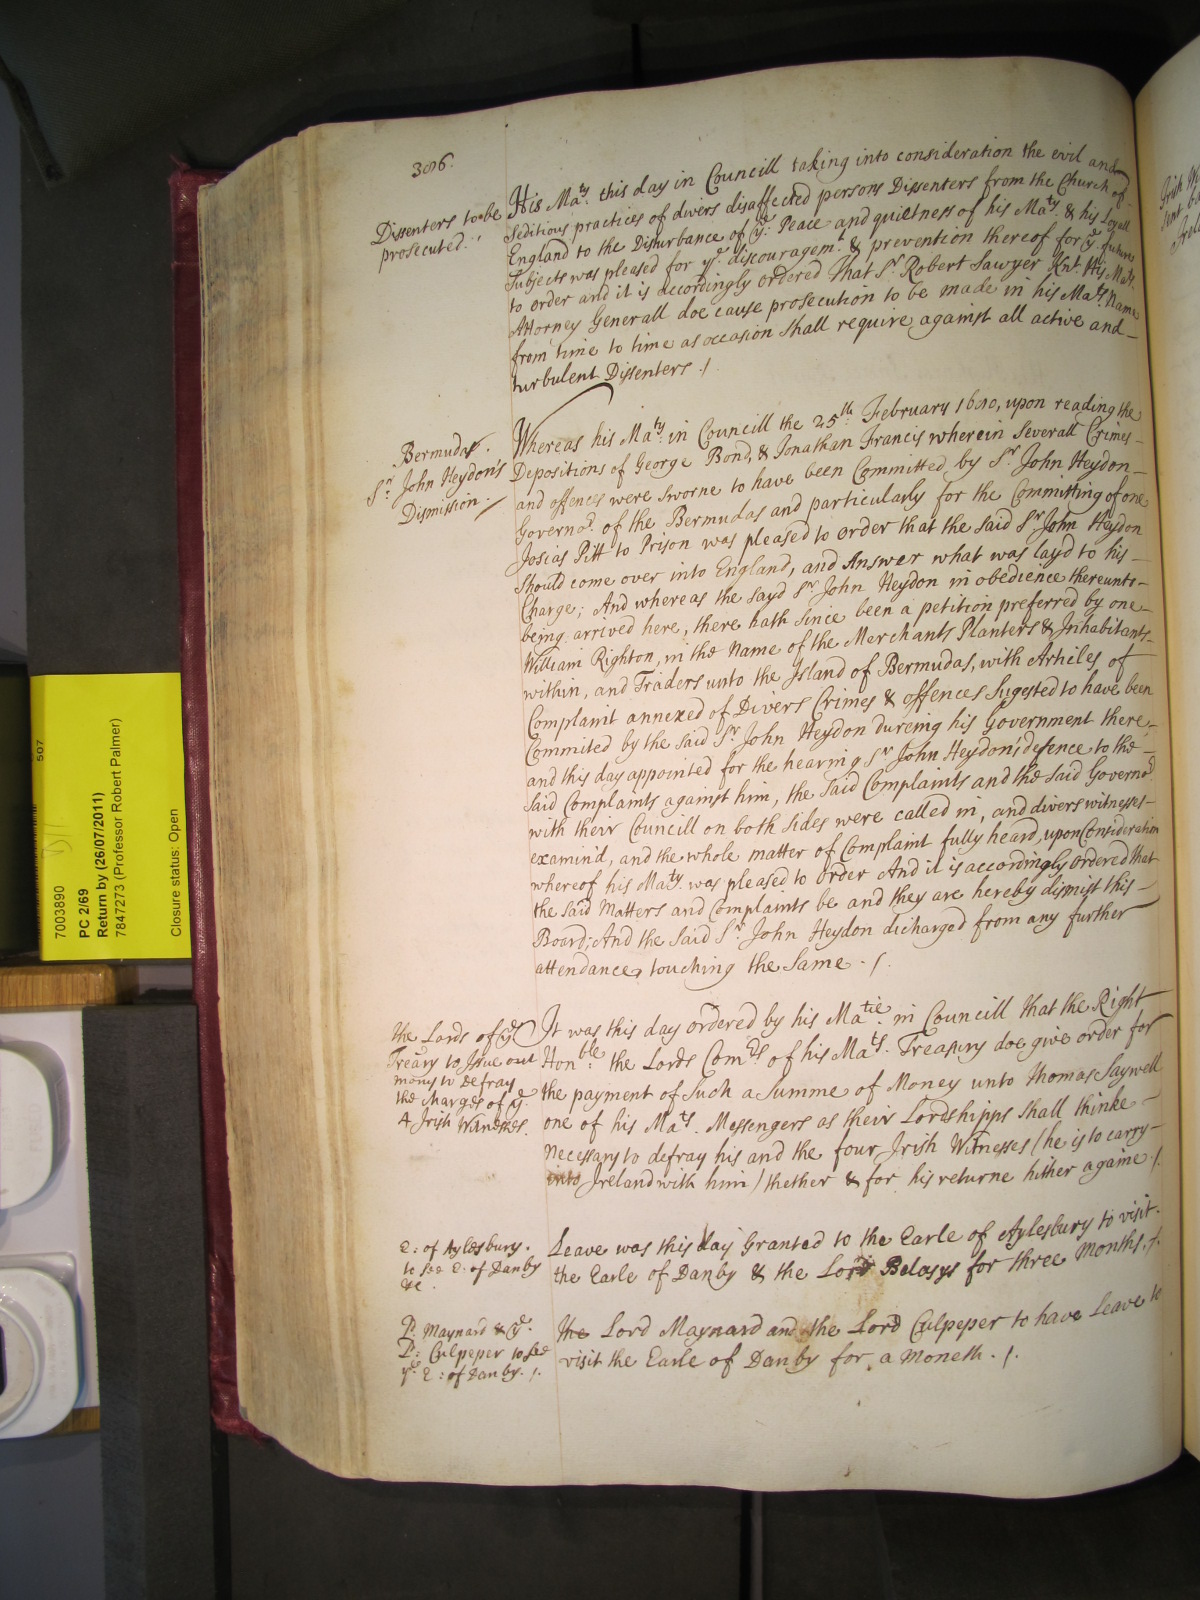 306.
Dissenters to be
prosecuted.
His Ma.ty this day in Councill taking into consideration the evil and
Seditious practices of divers disaffected persons Dissenters from the Church of
England to the Disturbance of y.e Peace and quietness of his Ma.ty & his Loyall
Subjects was pleased for y.e discouragem.t & prevention thereof for y.e future
to order and it is accordingly ordered That S.r Robert Sawyer Kn.t His Ma.ts
Attorney Generall doe cause prosecution to be made in his Ma.ts Name
from time to time as occasion shall require against all active and
turbulent Dissenters ./
Bermudas.
S.r John Heydon's
Dismission.
Whereas his Ma.ty in Councill the 25.th February 1680, upon reading the
Depositions of George Bond, & Jonathan Francis wherein Severall Crimes
and offences were Sworne to have been Committed by S.r John Heydon
Governo.r of the Bermudas and particularly for the Committing of one
Josias Pitt to Prison was pleased to order that the said S.r John Heydon
should come over into England, and Answer what was layd to his
Charge; And whereas the sayd S.r John Heydon in obedience thereunto
being arrived here, there hath since been a petition preferred by one
William Righton, in the Name of the Merchants Planters & Inhabitants
within, and Traders unto the Island of Bermudas, with Articles of
Complaint annexed of Divers Crimes & offences Sugested to have been
Commited by the said S.r John Heydon dureing his Government there
and this day appointed for the hearing S.r John Heydon's defence to the
said Complaints against him, the said Complaints and the said Governo.r
with their Councill on both sides were called in, and divers witnesses
examin'd, and the whole matter of Complaint fully heard, upon Consideration
whereof his Ma.ty was pleased to order And it is accordingly ordered that
the said Matters and Complaints be and they are hereby dismist this
Board; And the said S.r John Heydon dicharged from any further
attendance touching the same ./.
the Lords of y.e
Treãry to Issue out
mony to Defray
the Charges of y.e
4 Irish Witnesses.
It was this day ordered by his Ma.tie in Councill that the Right
Hon.ble the Lords Com.rs of his Ma.ts Treasury doe give order for
the payment of such a summe of Money unto Thomas Saywell
one of his Ma.ts Messengers as their Lordshipps shall thinke
necessary to defray his and the four Irish Witnesses (he is to carry
into Ireland with him) thether & for his returne hither againe ./.
E: of Aylesbury.
to see E: of Danby
&c.
Leave was this day Granted to the Earle of Aylesbury to visit
the Earle of Danby & the Lord Belasys for three Months. /.
L: Maynard & y.e
L: Culpeper to see
y.e E: of Danby. /.
the Lord Maynard and the Lord Culpeper to have Leave to
visit the Earle of Danby for a Moneth. /.
507
7003890
PC 2/69
Return by (26/07/2011)
7847273 (Professor Robert Palmer)
Closure status: Open